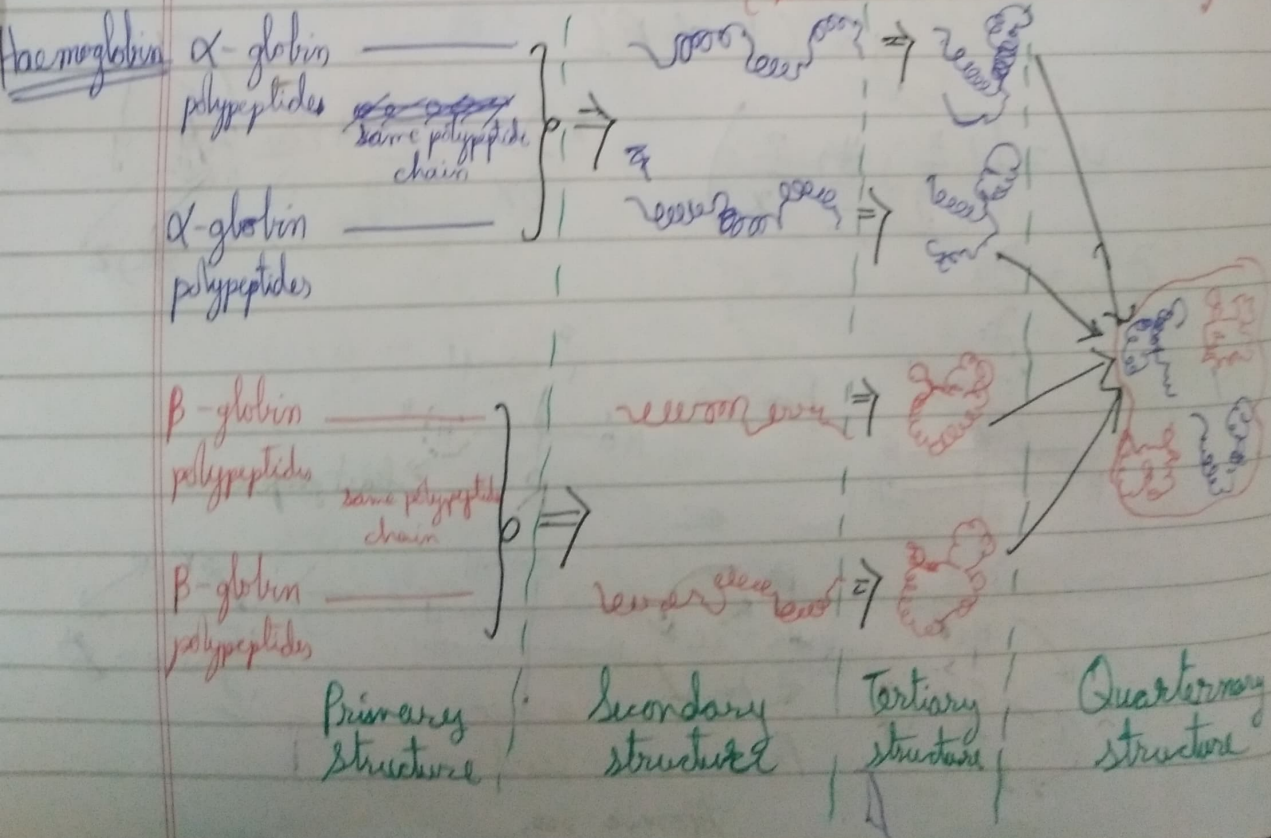 Haemoglobin α-globin
polypeptides
same polypeptide
chain
α-globin
polypeptides
β-globin
polypeptides
same polypeptide
chain
β-globin
polypeptides
Primary structure
Secondary structure
Tertiary structure
Quarternary structure